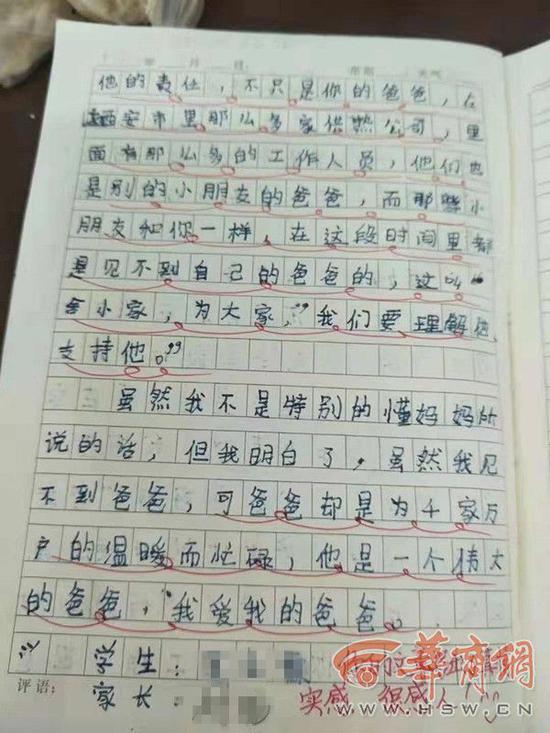 年 月 日 星期 天气
他的责任，不只是你的爸爸，在
西安市里那么多家供热公司，里
面有那么多的工作人员，他们也
是别的小朋友的爸爸，而那些小
朋友和你一样，在这段时间里都
是见不到自己的爸爸的，这叫“
舍小家，为大家，”我们要理解他，
支持他。”
虽然我不是特别的懂妈妈所
说的话，但我明白了，虽然我见
不到爸爸，可爸爸却是为千家万
户的温暖而忙碌，他是一个伟大
的爸爸，我爱我的爸爸。
学生：
评语： 家长：
实感，很感人！
華商網
WWW.HSW.CN